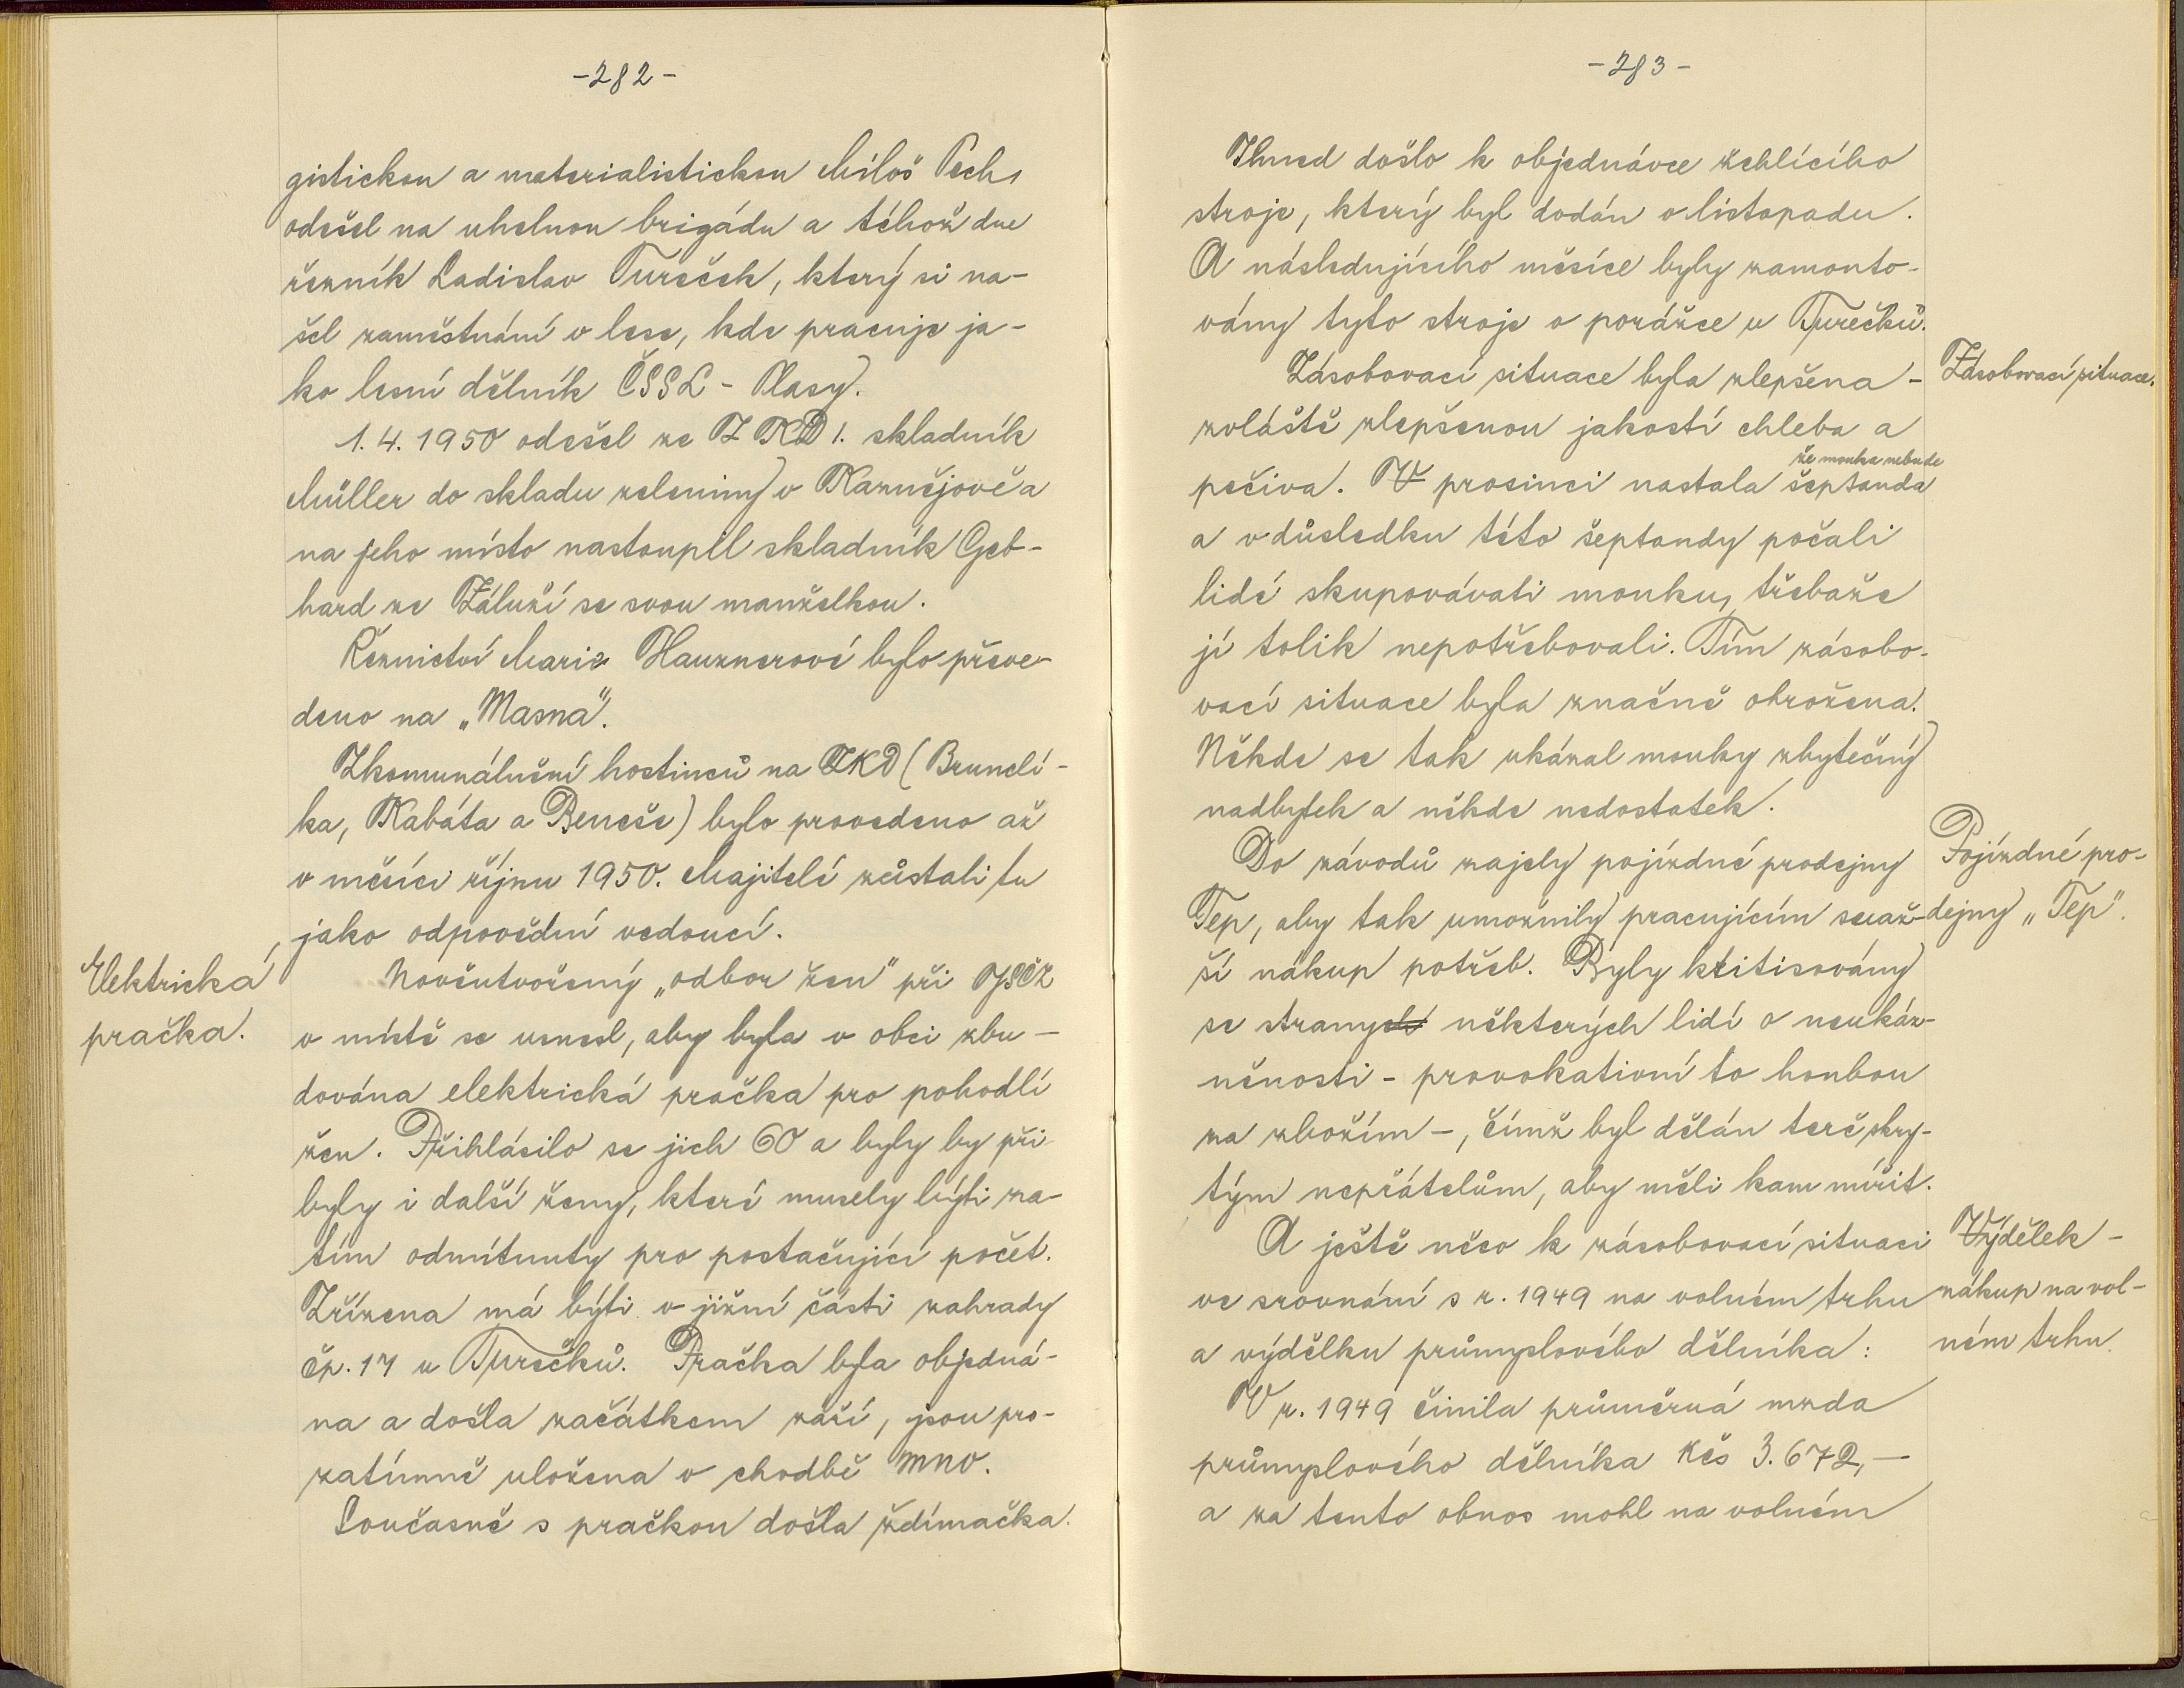 -282-
gistickou a materialistickou Miloš Pech,
odešel na uhelnou brigádu a téhož dne
řezník Ladislav Tureček, který si na-
šel zaměstnání v lese, kde pracuje ja-
ko lesní dělník ČSSL - Plasy.
1.4.1950 odešel ze ZKD 1. skladník
Müller do skladu zeleniny v Kaznějově a
na jeho místo nastoupil skladník Geb-
hard ze Záluží se svou manželkou.
Řeznictví Marie Hauznerové bylo převe-
deno na „Masna".
Zkomunálnění hostinců na ZKD (Brunclí-
ka, Kabáta a Beneše) bylo provedeno až
v měsíci říjnu 1950. Majitelé zůstali tu
jako odpovědní vedoucí.
Elektrická
pračka.
Nověutvořený „odbor žen" při JSČZ
v místě se usnesl, aby byla v obci zbu-
dována elektrická pračka pro pohodlí
žen. Přihlásilo se jich 60 a byly by při-
byly i další ženy, které musely býti za-
tím odmítnuty pro postačující počet.
Zřízena má býti v jižní části zahrady
čp. 17 u Turečků. Pračka byla objedná-
na a došla začátkem září, jsou pro-
zatímně uložena v chodbě MNV.
Současně s pračkou došla ždímačka.
-283-
Ihned došlo k objednávce žehlícího
stroje, který byl dodán v listopadu.
A následujícího měsíce byly zamonto-
vány tyto stroje v porážce u Turečků.
Zásobovací situace byla zlepšena -
Zásobovací situace.
zvláště zlepšenou jakostí chleba a
že mouka nebude
pečiva. V prosinci nastala šeptanda
a v důsledku této šeptandy počali
lidé skupovávati mouku, třebaže
jí tolik nepotřebovali. Tím zásobo-
vací situace byla značně ohrožena.
Někde se tak ukázal mouky zbytečný
nadbytek a někde nedostatek.
Do závodů zajely pojízdné prodejny
Pojízdné pro-
Tep, aby tak umožnily pracujícím snaž-
dejny „Tep".
ší nákup potřeb. Byly kritisovány
se stranych některých lidí o neukáz-
něnosti - provokativní to honbou
za zbožím -, čímž byl dělán terč skry-
tým nepřátelům, aby měli kam mířit.
A ještě něco k zásobovací situaci
Výdělek -
ve srovnání s r. 1949 na volném trhu
nákup na vol-
a výdělku průmyslového dělníka:
ném trhu.
V r. 1949 činila průměrná mzda
průmyslového dělníka Kčs 3.672,-
a za tento obnos mohl na volném